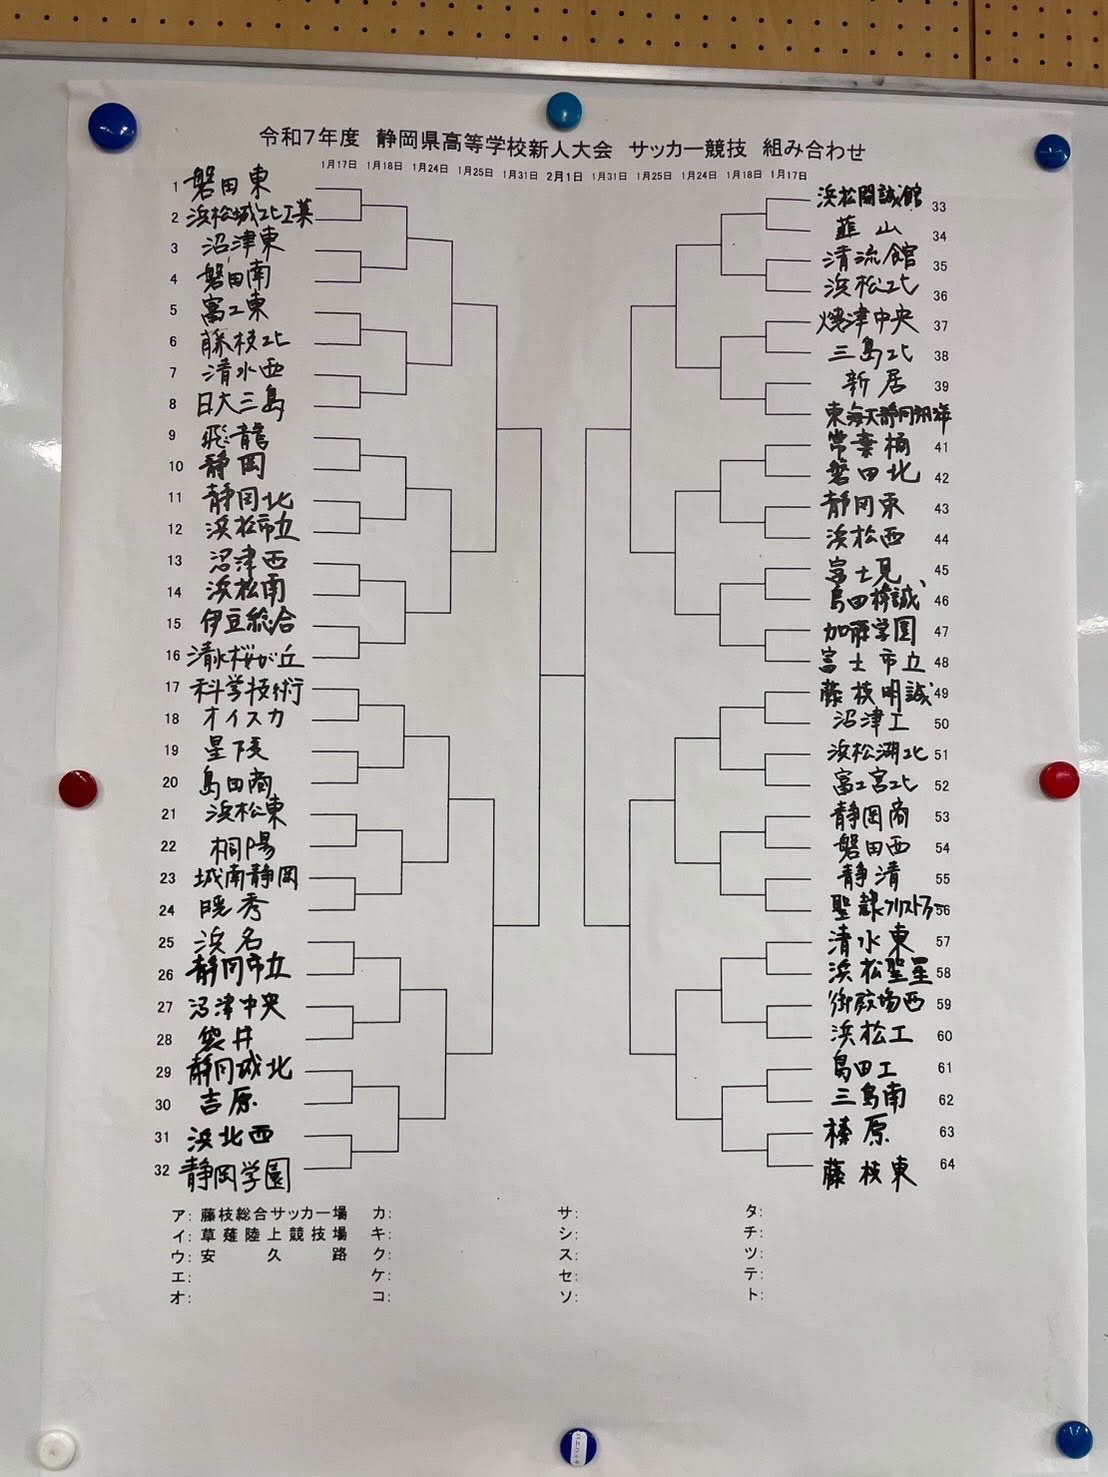 令和7年度 静岡県高等学校新人大会 サッカー競技 組み合わせ
1月17日 1月18日 1月24日 1月25日 1月31日 2月1日 1月31日 1月25日 1月24日 1月18日 1月17日
1 磐田東
2 浜松城北工業
3 沼津東
4 磐田南
5 富士東
6 藤枝北
7 清水西
8 日大三島
9 飛龍
10 静岡
11 静岡北
12 浜松市立
13 沼津西
14 浜松南
15 伊豆総合
16 清水桜が丘
17 科学技術
18 オイスカ
19 星陵
20 島田商
21 浜松東
22 桐陽
23 城南静岡
24 暁秀
25 浜名
26 静岡市立
27 沼津中央
28 袋井
29 静岡城北
30 吉原
31 浜北西
32 静岡学園
浜松開誠館 33
韮山 34
清流館 35
浜松北 36
焼津中央 37
三島北 38
新居 39
東海大静岡翔洋
常葉橘 41
磐田北 42
静岡東 43
浜松西 44
富士見 45
島田樟誠 46
加藤学園 47
富士市立 48
藤枝明誠 49
沼津工 50
浜松湖北 51
富士宮北 52
静岡商 53
磐田西 54
静清 55
聖隷クリストファー 56
清水東 57
浜松聖星 58
御殿場西 59
浜松工 60
島田工 61
三島南 62
榛原 63
藤枝東 64
ア: 藤枝総合サッカー場 カ: サ: タ:
イ: 草薙陸上競技場 キ: シ: チ:
ウ: 安久路 ク: ス: ツ:
エ: ケ: セ: テ:
オ: コ: ソ: ト: